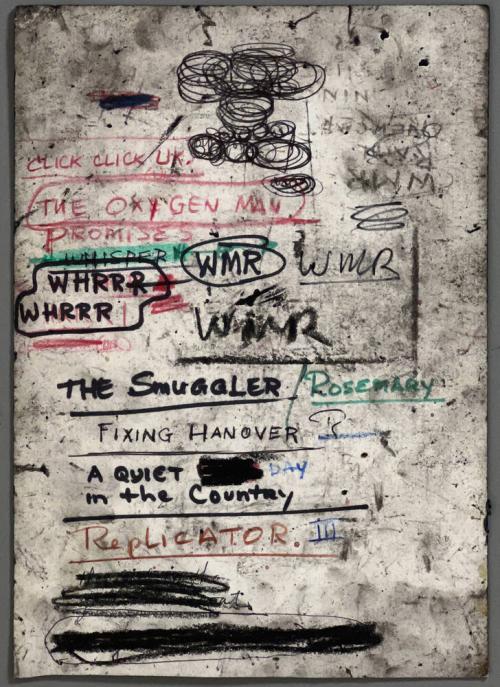 CLICK CLICK UK.
THE OXYGEN MAN
PROMISES
WHISPER
WHRRR WMR WMR
WHRRR WMR
THE SMUGGLER / ROSEMARY
FIXING HANOVER R
A QUIET DAY
in the Country
RepLiCATOR. III